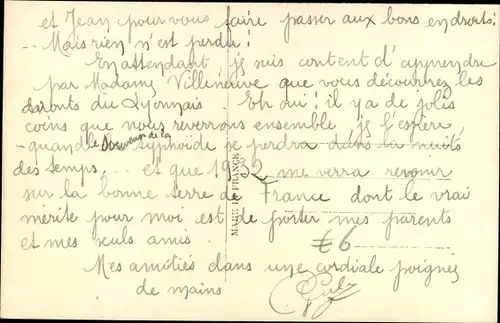 et Jean pour vous faire passer aux bons endroits;
.. Mais rien n'est perdu!
En attendant, je suis content d'apprendre
par Madame Villeneuve que vous découvrez les
monts du Lyonnais. Eh oui! il y a de jolis
coins que nous reverrons ensemble, je l'espère,
quand le souvenir de la typhoïde se perdra dans la nuits
des temps, ... et que 1932 me verra revenir
sur la bonne terre de France dont le vrai
mérite pour moi est de porter mes parents
et mes seuls amis.
Mes amitiés dans une cordiale poignée
de mains
MADE IN FRANCE
€6